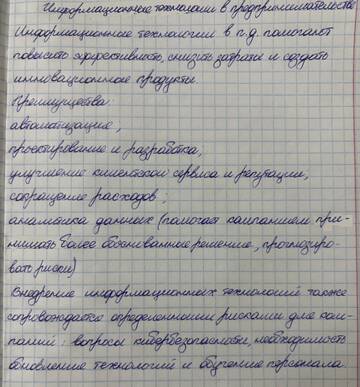 Информационные технологии в предпринимательстве
Информационные технологии в п.д. помогают
повысить эффективность, снизить затраты и создать
инновационные продукты.
Преимущества:
автоматизация,
проектирование и разработка,
улучшение клиентской сервиса и репутации,
сокращение расходов,
аналитика данных (помогает компанием при-
нимать более обоснованные решение, прогнозиро-
вать риски)
Внедрение информационных технологий также
сопровождается определёнными рисками для ком-
паний: вопросы кибербезопасности, необходимость
обновление технологий и обучение персонала.